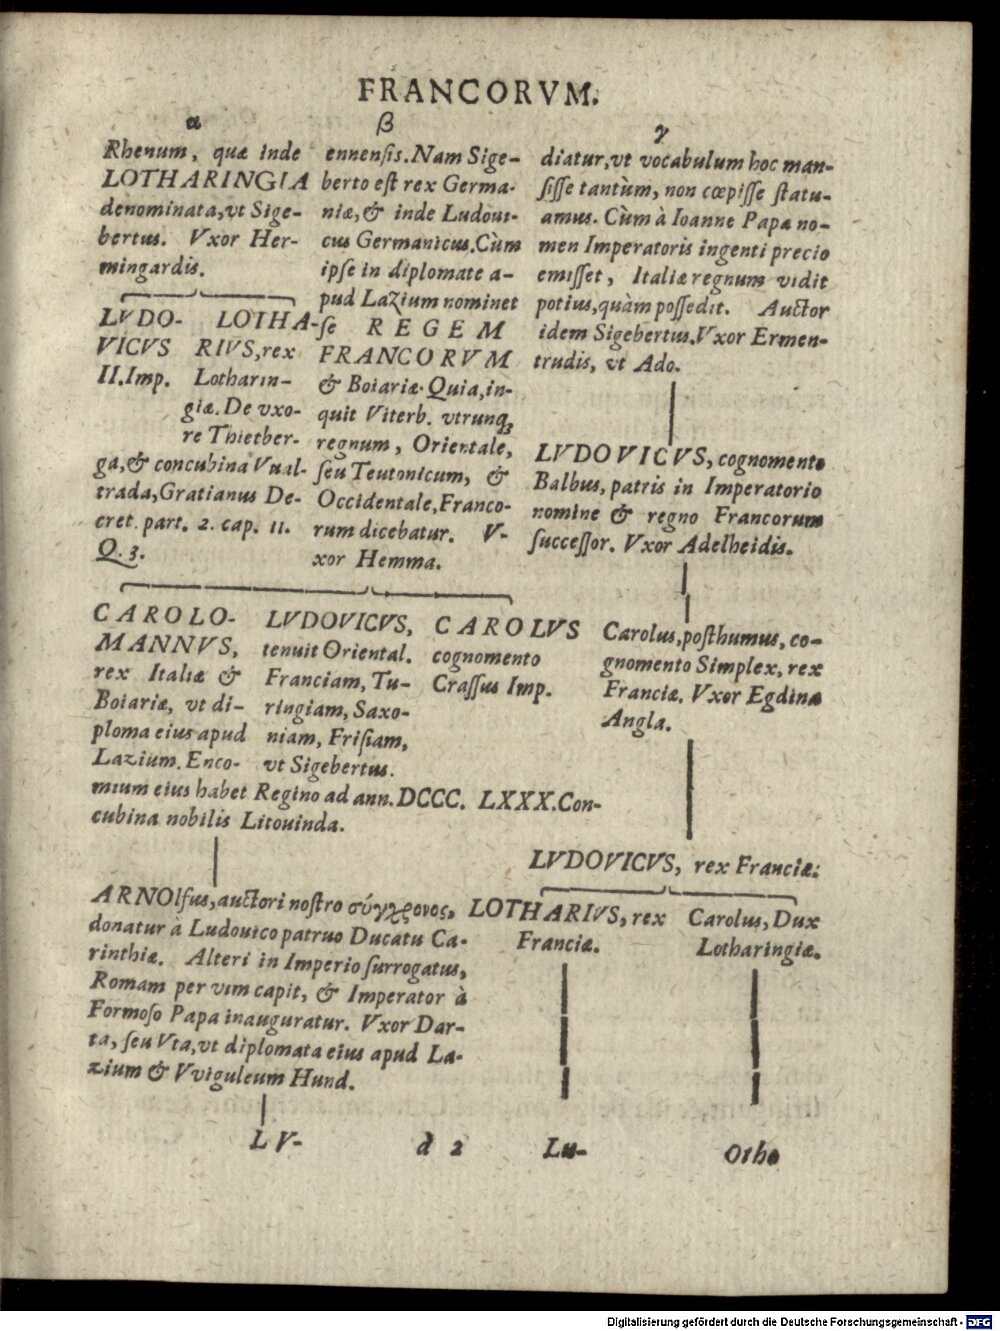 FRANCORVM.
α
Rhenum, quæ inde
LOTHARINGIA
denominata, vt Sige-
bertus. Vxor Her-
mingardis.
LVDO-
VICVS
II. Imp.
LOTHA-
RIVS, rex
Lotharin-
giæ. De vxo-
re Thietber-
ga, & concubina Vual-
trada, Gratianus De-
cret. part. 2. cap. 11.
Q. 3.
β
ennensis. Nam Sige-
berto est rex Germa-
niæ, & inde Ludoui-
cus Germanicus. Cùm
ipse in diplomate a-
pud Lazium nominet
se REGEM
FRANCORVM
& Boiariæ. Quia, in-
quit Viterb. vtrunq;
regnum, Orientale,
seu Teutonicum, &
Occidentale, Franco-
rum dicebatur. V-
xor Hemma.
γ
diatur, vt vocabulum hoc man-
sisse tantùm, non cœpisse statu-
amus. Cùm à Ioanne Papa no-
men Imperatoris ingenti precio
emisset, Italiæ regnum vidit
potius, quàm possedit. Auctor
idem Sigebertus. Vxor Ermen-
trudis, vt Ado.
LVDOVICVS, cognomento
Balbus, patris in Imperatorio
nomine & regno Francorum
successor. Vxor Adelheidis.
CAROLO-
MANNVS,
rex Italiæ &
Boiariæ, vt di-
ploma eius apud
Lazium. Enco-
LVDOVICVS,
tenuit Oriental.
Franciam, Tu-
ringiam, Saxo-
niam, Frisiam,
vt Sigebertus.
CAROLVS
cognomento
Crassus Imp.
mium eius habet Regino ad ann. DCCC. LXXX. Con-
cubina nobilis Litouinda.
Carolus, posthumus, co-
gnomento Simplex, rex
Franciæ. Vxor Egdina
Angla.
LVDOVICVS, rex Franciæ:
ARNOlfus, auctori nostro σύγχρονος,
donatur à Ludouico patruo Ducatu Ca-
rinthiæ. Alteri in Imperio surrogatus,
Romam per vim capit, & Imperator à
Formoso Papa inauguratur. Vxor Dar-
ta, seu Vta, vt diplomata eius apud La-
zium & Vviguleum Hund.
LOTHARIVS, rex
Franciæ.
Carolus, Dux
Lotharingiæ.
LV-
d 2
Lu-
Otho
Digitalisierung gefördert durch die Deutsche Forschungsgemeinschaft - DFG